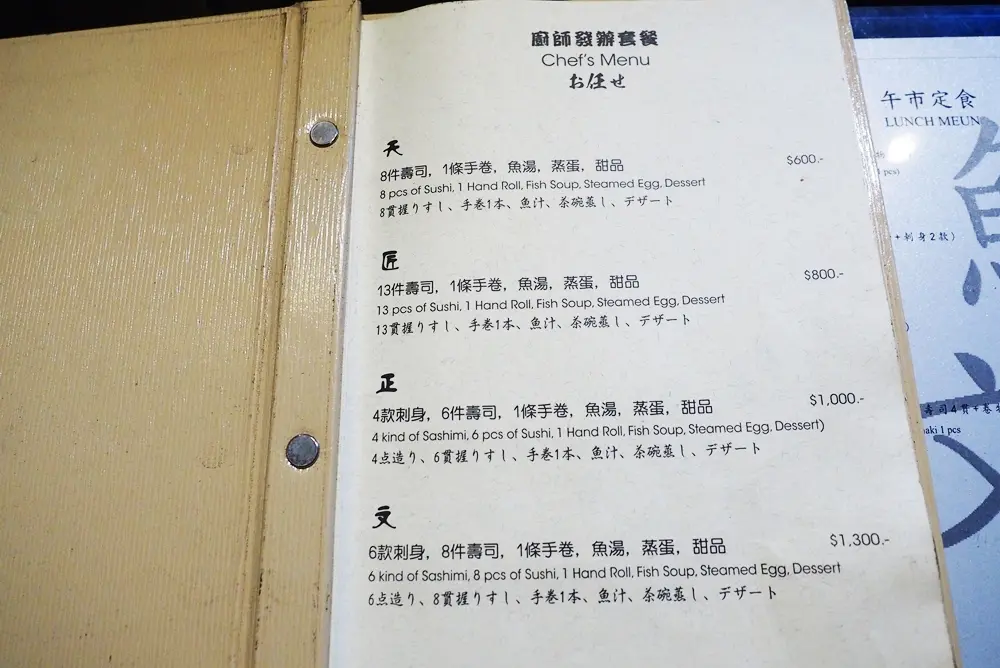 廚師發辦套餐
Chef's Menu
お任せ
天
8件壽司，1條手卷，魚湯，蒸蛋，甜品 $600.-
8 pcs of Sushi, 1 Hand Roll, Fish Soup, Steamed Egg, Dessert
8貫握りすし、手巻1本、魚汁、茶碗蒸し、デザート
匠
13件壽司，1條手卷，魚湯，蒸蛋，甜品 $800.-
13 pcs of Sushi, 1 Hand Roll, Fish Soup, Steamed Egg, Dessert
13貫握りすし、手巻1本、魚汁、茶碗蒸し、デザート
正
4款刺身，6件壽司，1條手卷，魚湯，蒸蛋，甜品 $1,000.-
4 kind of Sashimi, 6 pcs of Sushi, 1 Hand Roll, Fish Soup, Steamed Egg, Dessert)
4点造り、6貫握りすし、手巻1本、魚汁、茶碗蒸し、デザート
文
6款刺身，8件壽司，1條手卷，魚湯，蒸蛋，甜品 $1,300.-
6 kind of Sashimi, 8 pcs of Sushi, 1 Hand Roll, Fish Soup, Steamed Egg, Dessert
6点造り、8貫握りすし、手巻1本、魚汁、茶碗蒸し、デザート
午市定食
LUNCH MEUN
pcs)
+刺身2款)
壽司4貫+卷
aki 1 pcs